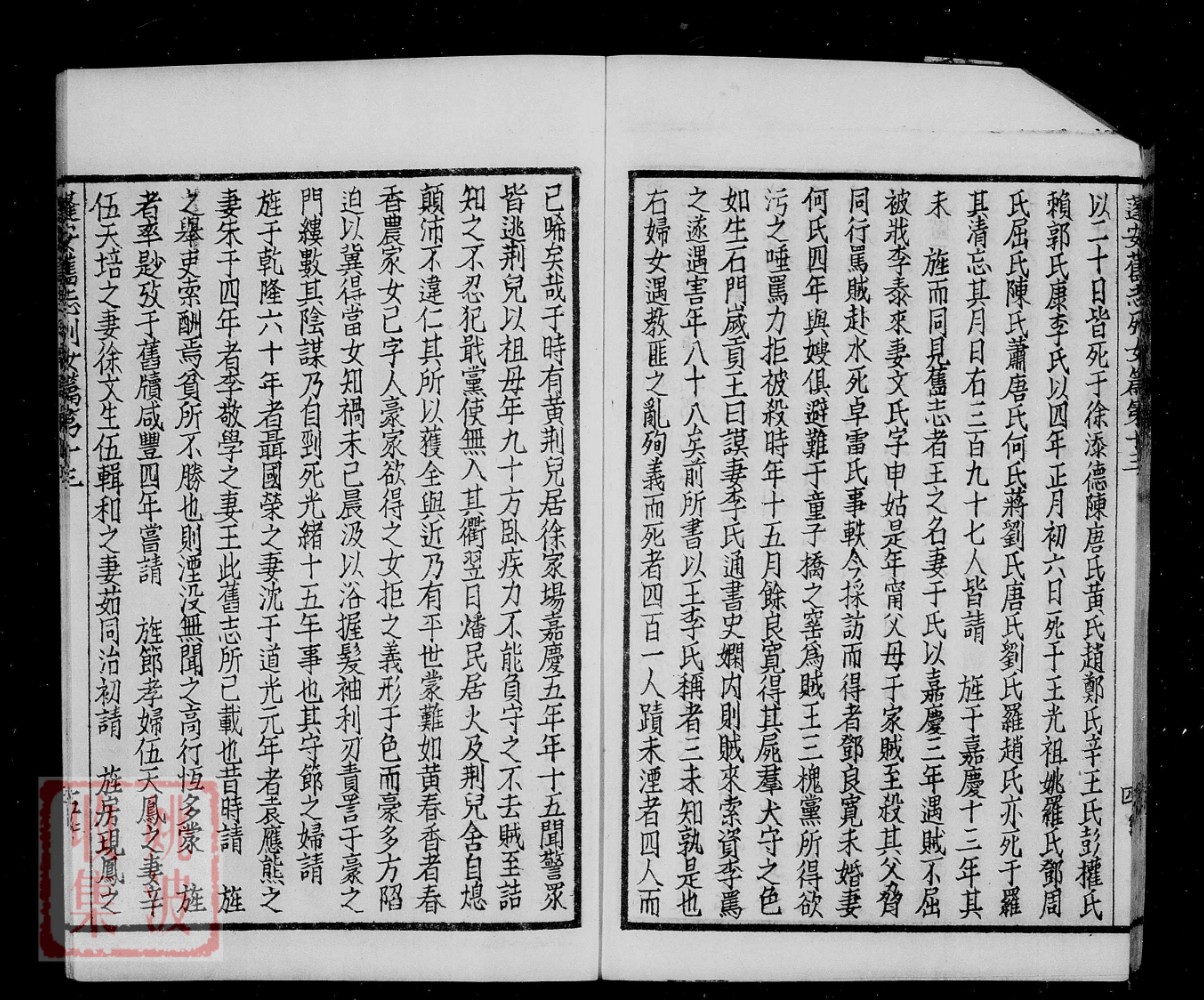 蓬安舊志列女篇第十三
以二十日皆死于徐添德陳唐氏黃氏趙鄭氏辛王氏彭權氏
賴郭氏康李氏以四年正月初六日死于王光祖姚羅氏鄧周
氏屈氏陳氏蕭唐氏何氏蔣劉氏唐氏劉氏羅趙氏亦死于羅
其清忘其月日右三百九十七人皆請 旌于嘉慶十三年其
未 旌而同見舊志者王之名妻于氏以嘉慶三年遇賊不屈
被戕李泰來妻文氏字申姑是年甯父母于家賊至殺其父脅
同行罵賊赴水死卓雷氏事軼今採訪而得者鄧良寬未婚妻
何氏四年與嫂俱避難于童子橋之窰爲賊王三槐黨所得欲
污之唾罵力拒被殺時年十五月餘良寬得其屍羣犬守之色
如生石門嵗貢王曰謨妻李氏通書史嫻内則賊來索資李罵
之遂遇害年八十八矣前所書以王李氏稱者三未知孰是也
右婦女遇教匪之亂殉義而死者四百一人蹟未湮者四人而
已晞矣哉于時有黄荆兒居徐家場嘉慶五年年十五聞警眾
皆逃荆兒以祖母年九十方卧疾力不能負守之不去賊至詰
知之不忍犯戢黨使無入其衖翌日燔民居火及荆兒舍自熄
顛沛不違仁其所以獲全與近乃有平世蒙難如黄春香者春
香農家女已字人豪家欲得之女拒之義形于色而豪多方陷
迫以冀得當女知禍未已晨汲以浴握髮袖利刃責詈于豪之
門縷數其陰謀乃自剄死光緒十五年事也其守節之婦請
旌于乾隆六十年者聶國榮之妻沈于道光元年者袁應熊之
妻朱于四年者李敬學之妻王此舊志所已載也昔時請 旌
之舉吏索酬焉貧所不勝也則湮没無聞之高行恆多蒙 旌
者率尟攷于舊牘咸豐四年嘗請 旌節孝婦伍天鳳之妻辛
伍天培之妻徐文生伍輯和之妻茹同治初請 旌房現鳳之
蓬安舊志列女篇第十三
姚波
收集